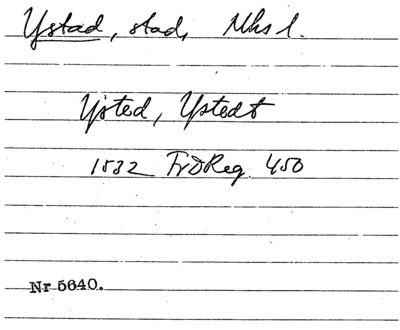 Ystad, stad, Mhs l.
Ysted, Ystedt
1532 FrDReg. 450
Nr 5640.